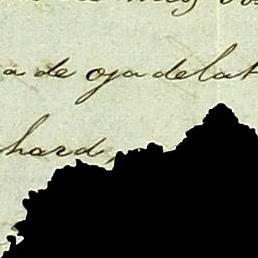 a de oja de lat
hard,